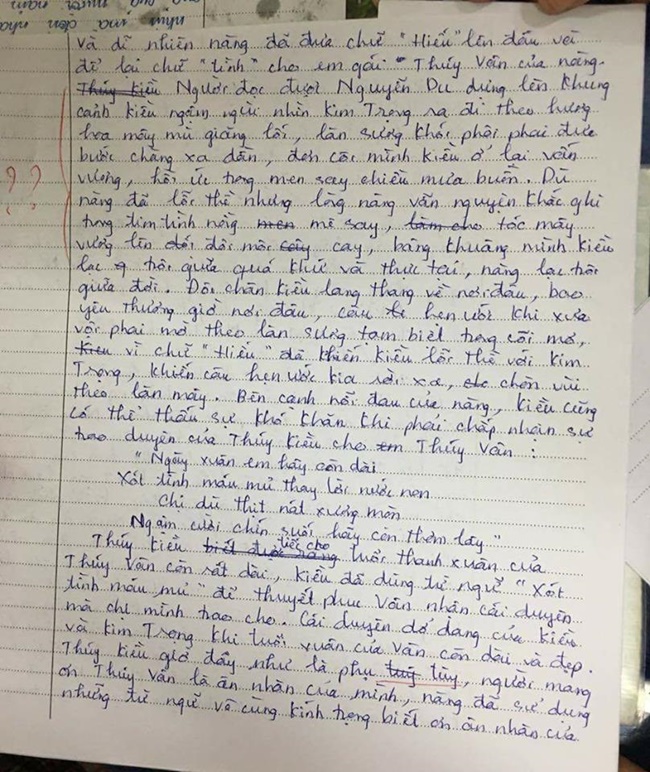 Và dĩ nhiên nàng đã đưa chữ "Hiếu" lên đầu với
để lại chữ "tình" cho em gái Thúy Vân của nàng.
Thúy Kiều Người đọc được Nguyễn Du dựng lên khung
cảnh Kiều ngậm ngùi nhìn Kim Trọng ra đi theo hương
hoa mây mù giăng lối, làn sương khói phôi phai đưa
bước chàng xa dần, đơn côi mình Kiều ở lại vấn
vương, hồi ức trong men say chiều mưa buồn. Dù
nàng đã lỗi thề nhưng lòng nàng vẫn nguyên khắc ghi
trong tim tình nồng men mê say, làm cho tóc mây
vương lên đôi môi cay, bâng khuâng mình Kiều
lạc trôi giữa quá khứ và thực tại, nàng lạc trôi
giữa đời. Đôi chân Kiều lang thang về nơi đâu, bao
yêu thương giờ nơi đâu, câu hẹn ước khi xưa
vội phai mờ theo làn sương tan biến trong cõi mơ,
Kiều vì chữ "Hiếu" đã khiến Kiều lỗi thề với Kim
Trọng, khiến câu hẹn ước kia rời xa, chôn vùi
theo làn mây. Bên cạnh nỗi đau của nàng, Kiều cũng
có thể thấu sự khó khăn khi phải chấp nhận sự
trao duyên của Thúy Kiều cho em Thúy Vân:
"Ngày xuân em hãy còn dài
Xót tình máu mủ thay lời nước non
Chị dù thịt nát xương mòn
Ngậm cười chín suối hãy còn thơm lây"
Thúy Kiều biết được rằng tiếc cho tuổi thanh xuân của
Thúy Vân còn rất dài, Kiều đã dùng từ ngữ "Xót
tình máu mủ" để thuyết phục Vân nhận cái duyên
mà chị mình trao cho. Cái duyên dở dang của Kiều
và Kim Trọng khi tuổi xuân của Vân còn dài và đẹp.
Thúy Kiều giờ đây như là phụ tùy, người mang
ơn Thúy Vân là ân nhân của mình, nàng đã sử dụng
những từ ngữ vô cùng kính trọng biết ơn ân nhân của